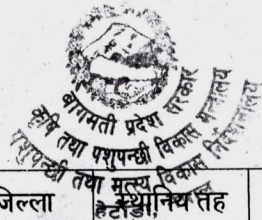 बागमती प्रदेश सरकार
कृषि तथा पशुपन्छी विकास मन्त्रालय
पशुपन्छी तथा मत्स्य विकास निर्देशनालय
हेटौंडा,
जिल्ला
स्थानिय तह